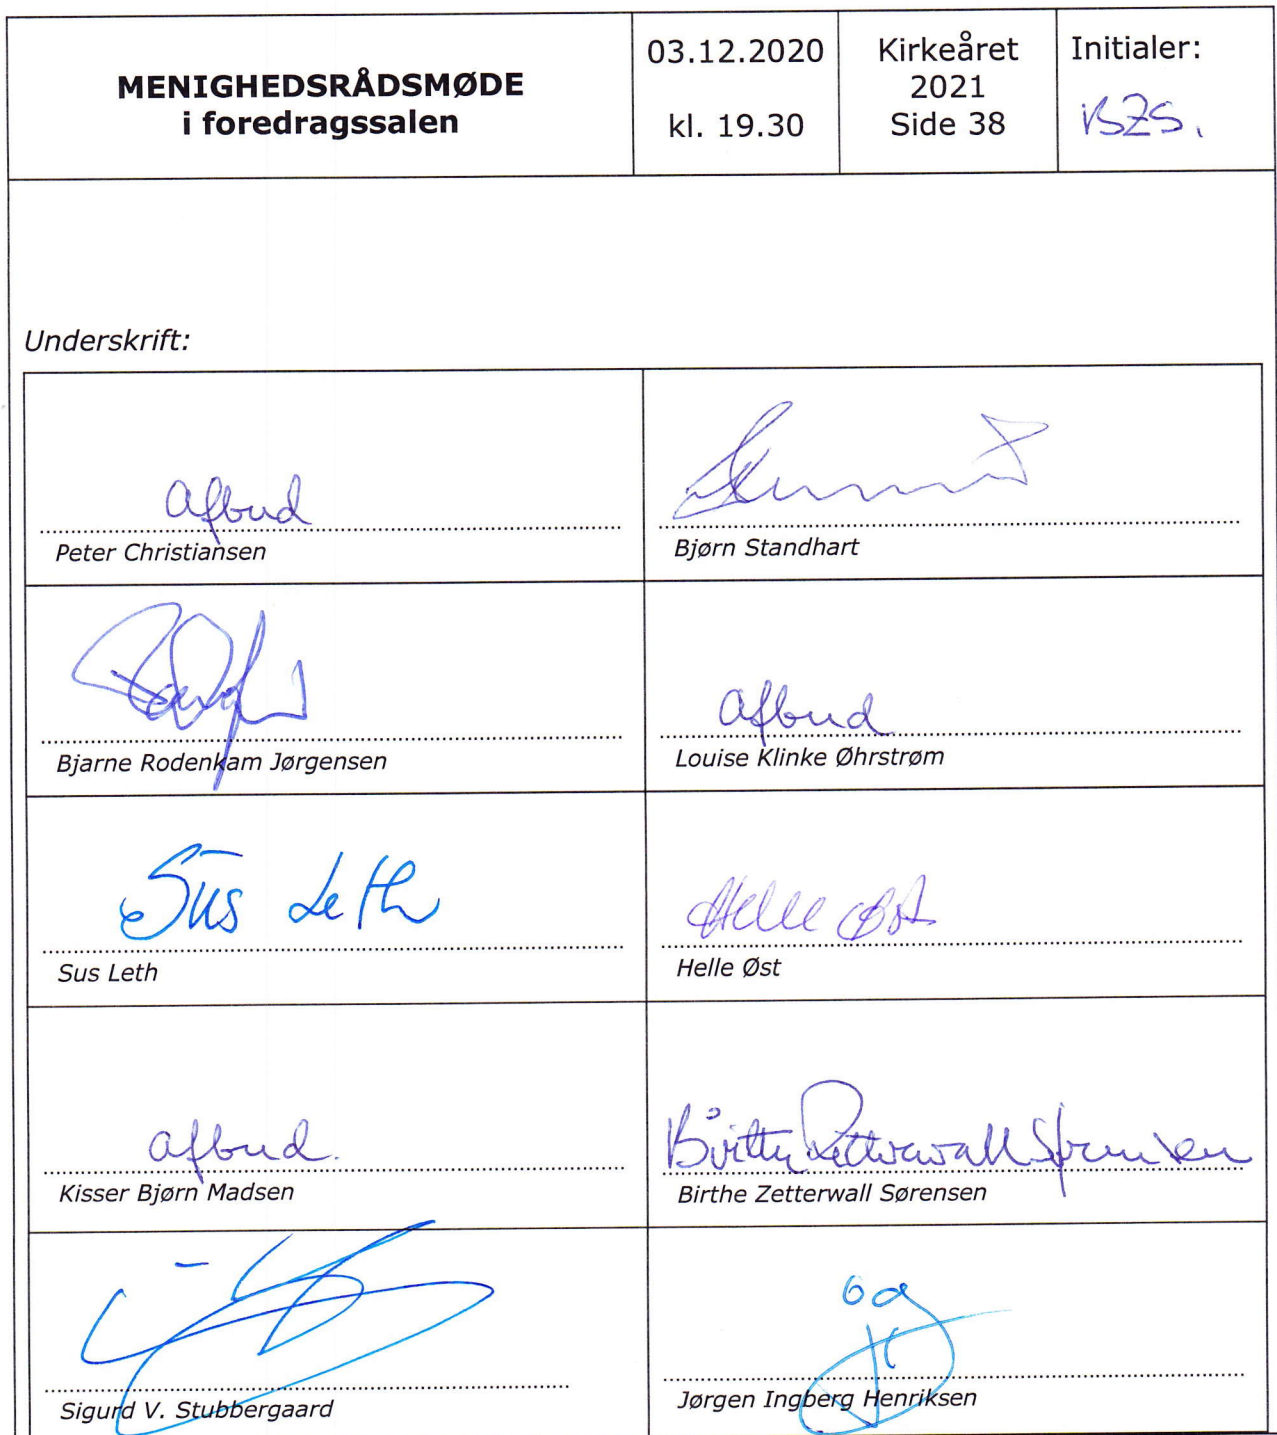 MENIGHEDSRÅDSMØDE
i foredragssalen
03.12.2020
kl. 19.30
Kirkeåret
2021
Side 38
Initialer:
BZS.
Underskrift:
Afbud
Peter Christiansen
Bjørn Standhart
Bjarne Rodenkam Jørgensen
Afbud
Louise Klinke Øhrstrøm
Sus Leth
Sus Leth
Helle Øst
Helle Øst
Afbud.
Kisser Bjørn Madsen
Birthe Zetterwall Sørensen
Birthe Zetterwall Sørensen
Sigurd V. Stubbergaard
Jørgen Ingberg Henriksen